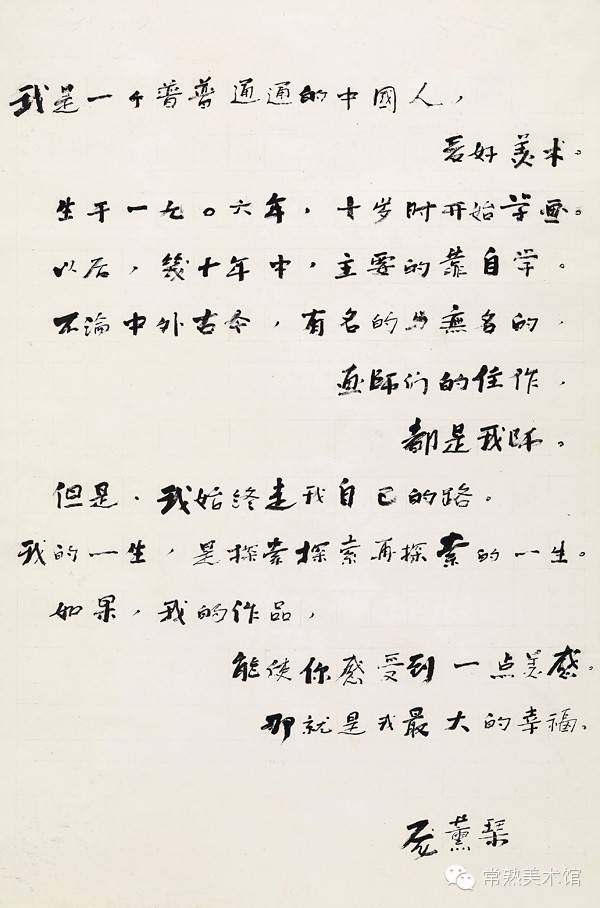 我是一个普普通通的中國人，
爱好美术。
生于一九〇六年，十岁时开始学画。
以后，幾十年中，主要的靠自学。
不論中外古今，有名的与無名的，
画師们的佳作，
都是我師。
但是，我始終走我自己的路。
我的一生，是探索探索再探索的一生。
如果，我的作品，
能使你感受到一点美感。
那就是我最大的幸福。
庞薰琹
常熟美术馆